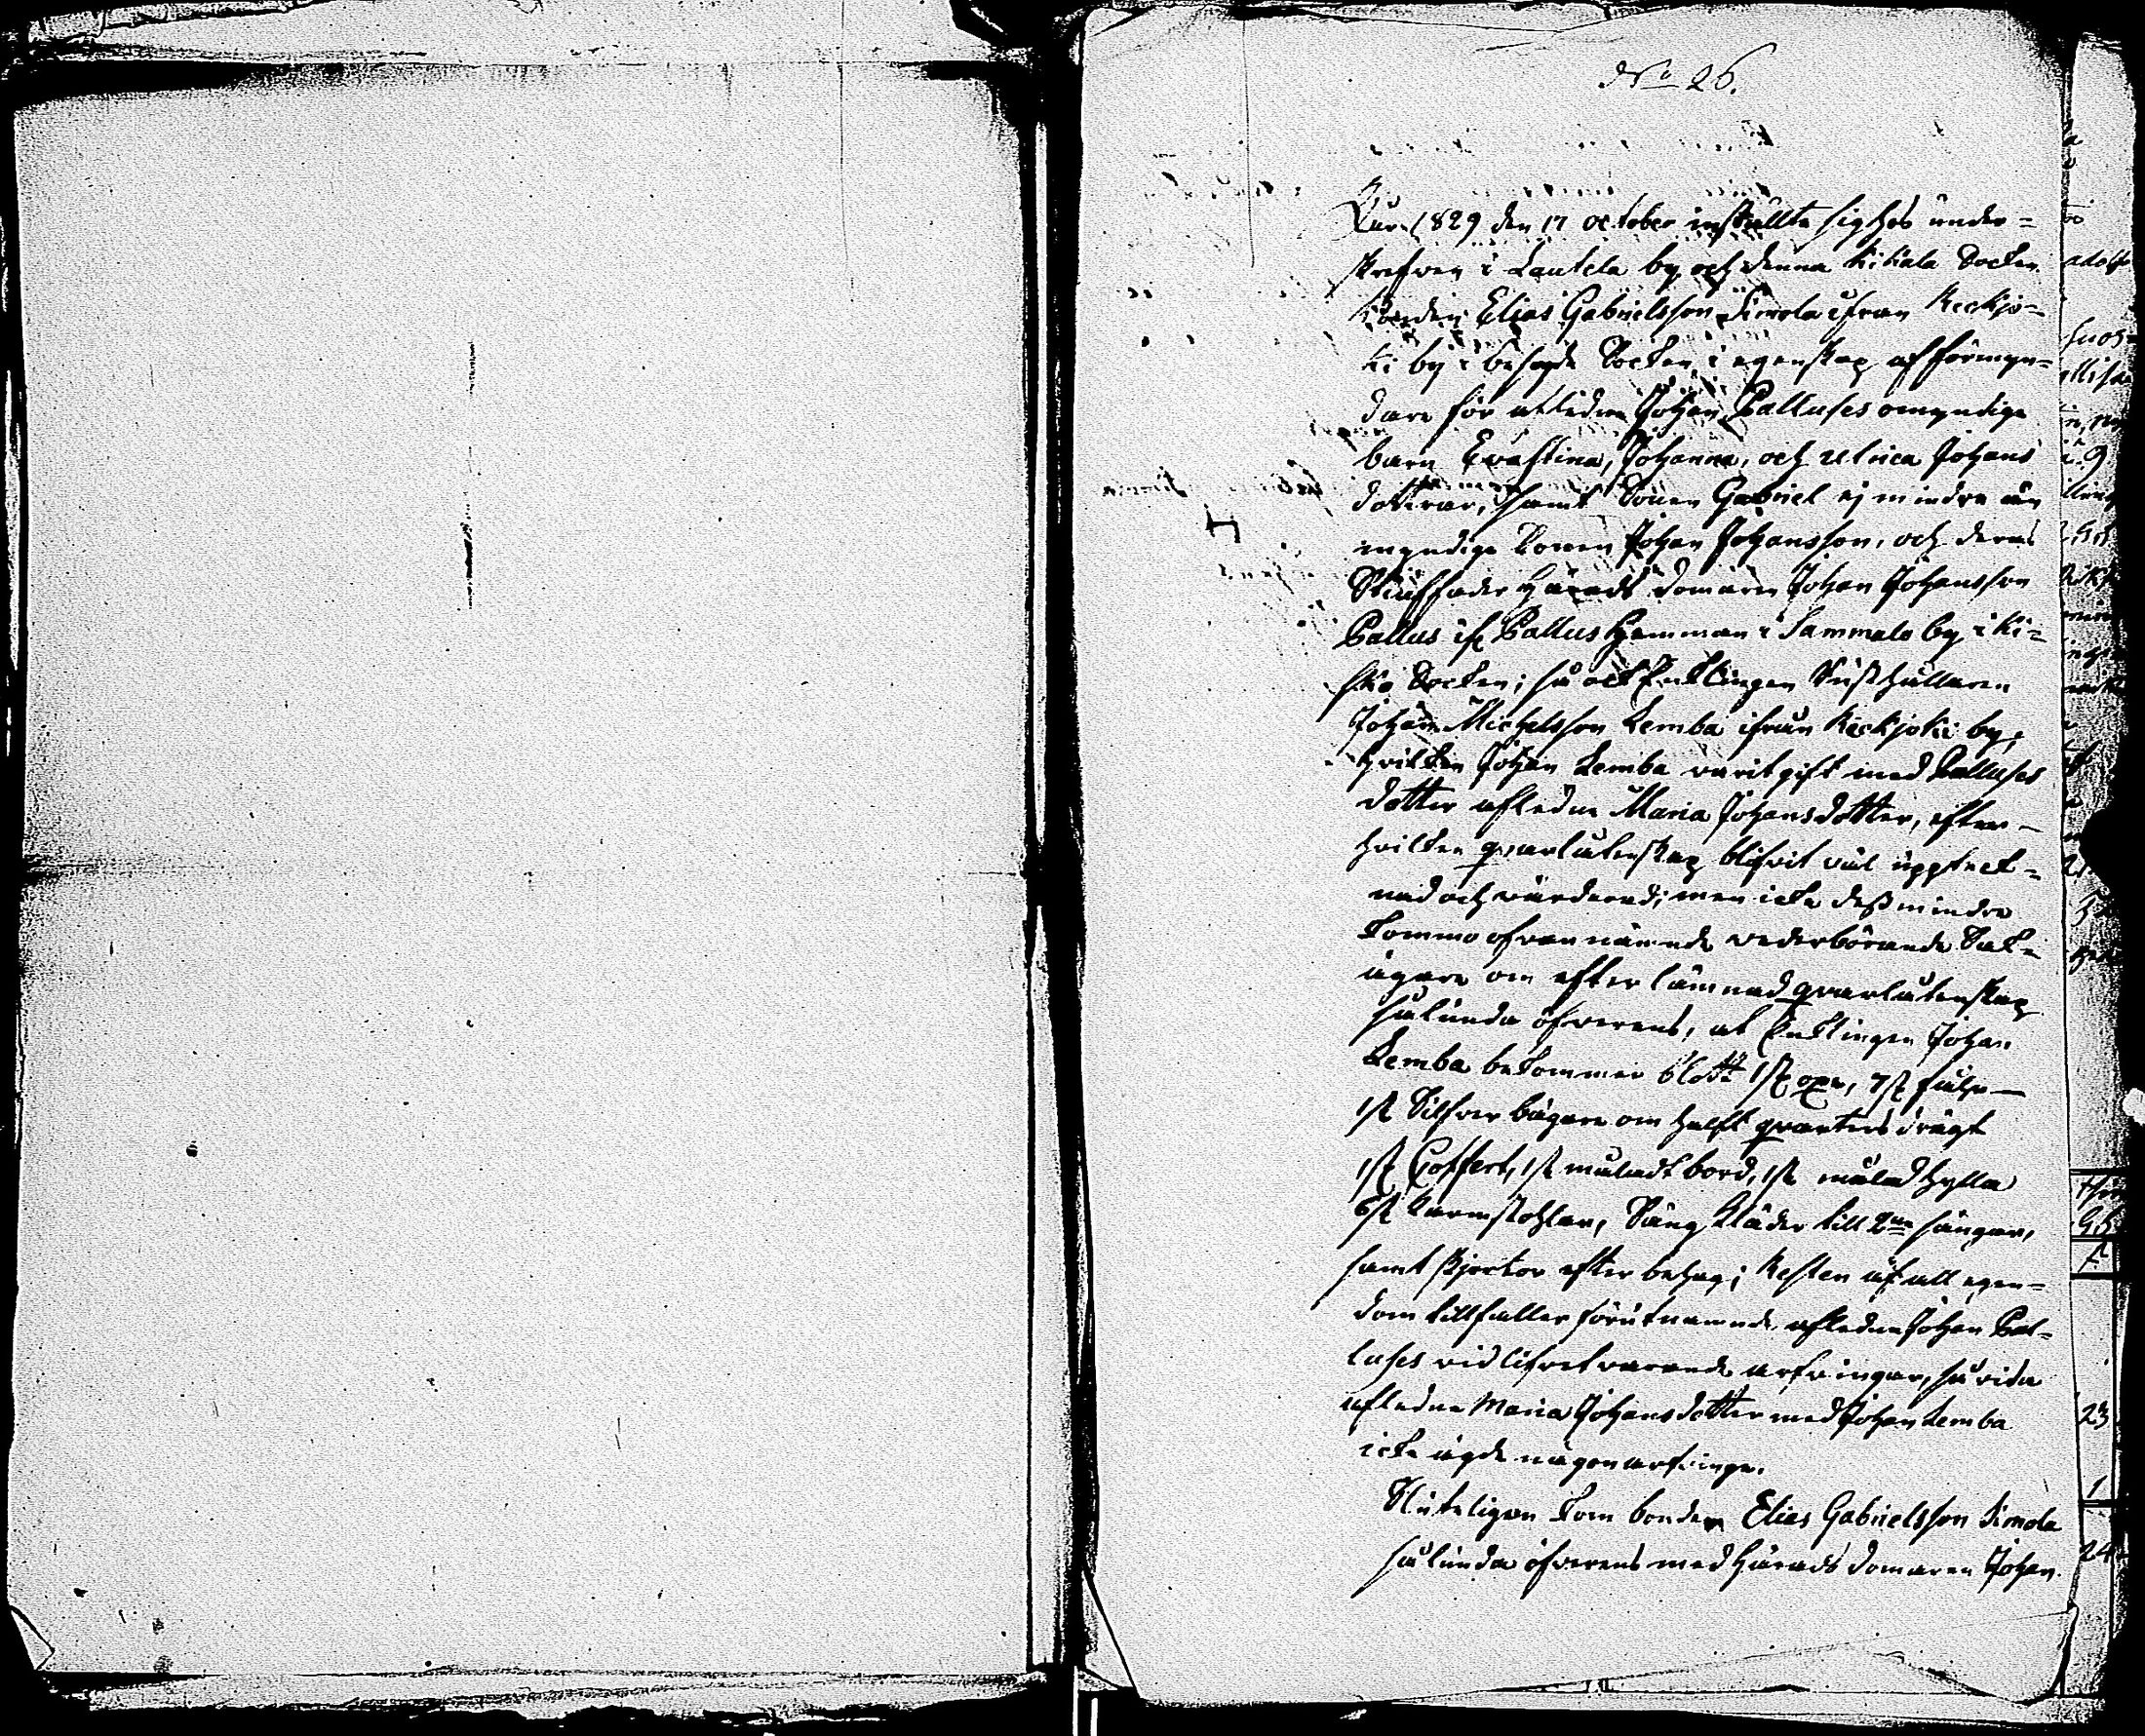 No 26.
År 1829 den 17 october inställte sig hos under=
skrefven i Lautela by och denna Kikala Socken
bonden Elias Gabrielsson Simola ifrån Keckjo=
ki by i besagde Socken, i egenskap af förmyn=
dare för afledne Johan Palluses omyndige
barn Evastina, Johanna, och Ulrica Johans
döttrar, samt Sonen Gabriel ej mindre än
myndige Sonen Johan Johansson, och deras
Stiuffader Härads domaren Johan Johansson
Pallus if. Pallus Hemman i Sammalo by i Ki=
sko Socken; så ock Enklingen Rusthållaren
Johan Michelsson Lemba ifrån Keckjoki by,
hvilken Johan Lemba varit gift med Palluses
dotter afledne Maria Johansdotter, efter
hvilken qvarlåtenskap blifvit väl uppteck=
nad och värderad; men icke dess mindre
kommo ofvannämnde vederbörande Sak=
ägare om efterlämnad qvarlåtenskap
sålunda öfverens, at Enklingen Johan
Lemba bekommer blott 1 st oxe, 7 st fulse
1 st Silfver bägare om halft qvarters drägt
1 st Coffert, 1 st måladt bord, 1 st målad hylla
6 st karmstohlar, Säng kläder till 2ne sängar,
samt skjortor efter behag; Resten af all egen=
dom tillfaller förutnämnde afledne Johan Pal=
luses vid lifvet varande arfvingar, så vida
afledne Maria Johansdotter med Johan Lemba
icke ägde någon arfvinge.
Sluteligen kom bonden Elias Gabrielsson Simola
sålunda öfverens med Härads domaren Johan